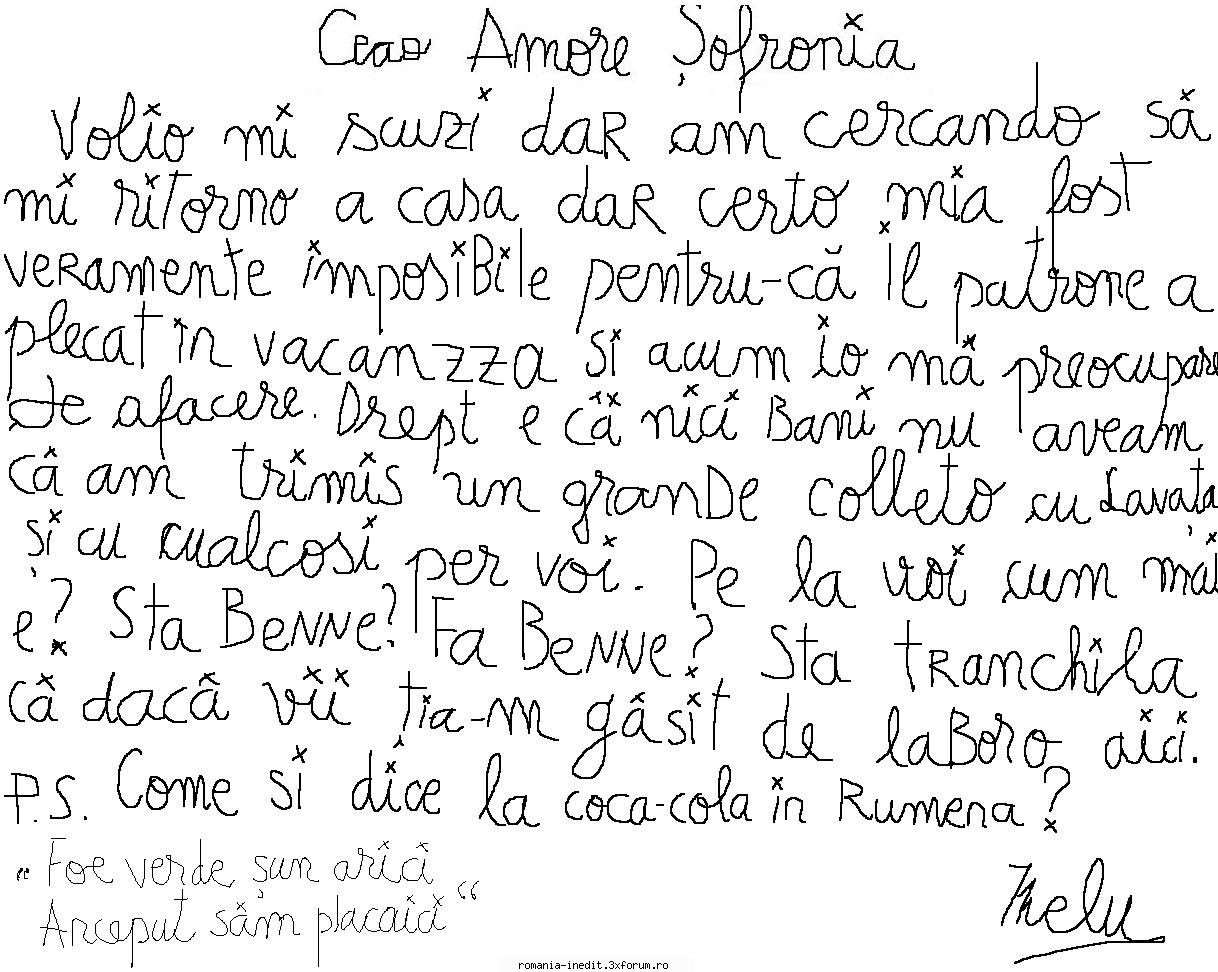 Ceao Amore Șofronia
Volio mi scuzi daR am cercando să
mi ritorno a casa daR certo mia fost
veRamente imposiBile pentru-că il patrone a
plecat în vacanzza si acum io mă preocupare
de afacere. Drept e că nici Bani nu aveam
că am trimis un granDe colleto cu Lavata
și cu cualcosi per voi. Pe la voi cum mai
e? Sta BeNNe? Fa BeNNe? Sta tRanchila
că dacă vii ția-m găsit de laBoro aici.
P.S. Come si dice la coca-cola în Rumena?
„Foe verde șun arici
Anceput săm placaici“
Nelu
romania-inedit.3xforum.ro